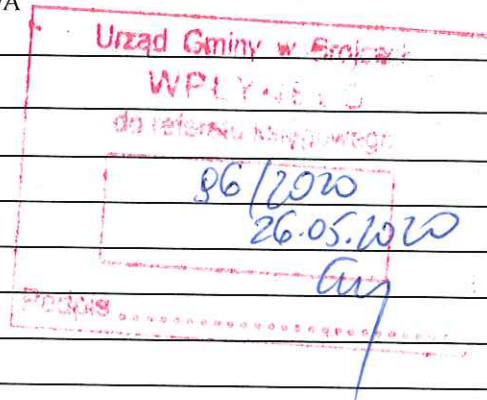 A
Urząd Gminy w
WPŁYNĘŁO
do referatu
96/2020
26.05.2020
Podpis